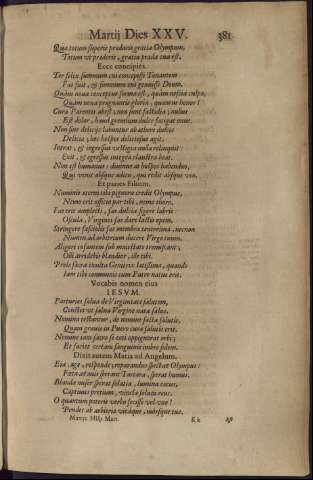 Martij Dies XXV. 381
Qua totum superis proderis gratia Olympum,
Totum vt proderis, gratia prada tua est.
Ecce concipies.
Ter felix summum cui concepisse Tonantem
Fas fuit, & summum cui genuisse Deum.
Quàm noua conceptus forma est, quàm nescia culpa,
Quàm noua prægnantis gloria, quantus honor!
Cura Parentis abest; non sunt fastidia; nullus
Est dolor, haud grauium dulce fatigat onus.
Non sunt deliciæ labuntur ab æthere
Delicia; hoc hospes deliciisque agit.
Intrat, & ingressus vestigia nulla relinquit:
Exit, & egressus integra claustra beat.
Non est humanus: diuinus at hospes habendus,
Qui venit absque aditu, qui redit absque via.
Et paries Filium.
Numinis æterni tibi pignora credit Olympus;
Nemo erit officio par tibi, nemo throno.
Fas erit amplecti, fas dulcia figere labris
Oscula, Virgineas fas dare lactis opem.
Stringere fasciolis fas membra tenerrima, necnon
Numen ad arbitrium ducere Virgo tuum.
Aligeri assuetum sub maiestate tremiscant;
Olli arridebis blandior, ille tibi.
Prole sacra exulta Genitrix lætissima, quando
Iam tibi communis cum Patre natus erit.
Vocabis nomen eius
IESVM.
Parturies salua de Virginitate salutem,
Constet vt salua Virgine nata salus.
Nomina testantur, de nomine facta salutis,
Quàm grauis in Puero cura salutis erit.
Nomine tam sacro se teti oppignerat orbi;
Et faciet certam sanguinis imbre fidem.
Dixit autem Maria ad Angelum.
Eia, age, responde; reparandus spectat Olympus:
Fœta at suis sperant Tartara, sperat humus.
Blanda miser sperat solatia, lumina cæcus,
Captiuus pretium, vincla soluta reus.
O quantum poteris verbo fecisse vel vno!
Pendet ab arbitrio vitáque, mórsque tuo.
Martyr. Hisp. Mart. Kk